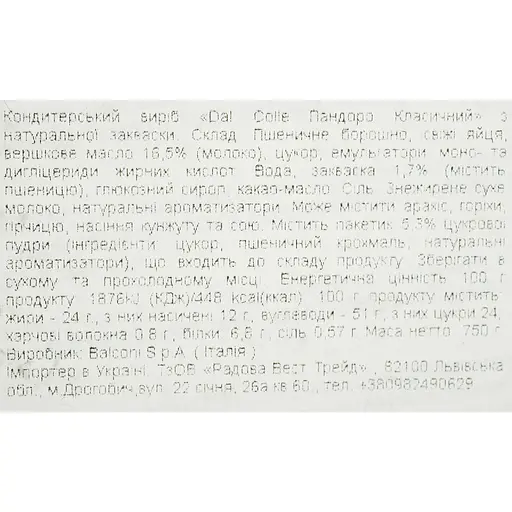 Кондитерський виріб «Dal Colle Пандоро Класичний» з
натуральної закваски. Склад: Пшеничне борошно, свіжі яйця,
вершкове масло 16,5% (молоко), цукор, емульгатори: моно- та
дигліцериди жирних кислот. Вода, закваска 1,7% (містить
пшеницю), глюкозний сироп, какао-масло. Сіль. Знежирене сухе
молоко, натуральні ароматизатори. Може містити арахіс, горіхи,
гірчицю, насіння кунжуту та сою. Містить пакетик 5,3% цукрової
пудри (інгредієнти: цукор, пшеничний крохмаль, натуральні
ароматизатори), що входить до складу продукту. Зберігати в
сухому та прохолодному місці. Енергетична цінність 100 г
продукту: 1876kJ (КДж)/448 kcal(ккал). 100 г продукту містить:
жири - 24 г, з них насичені 12 г, вуглеводи - 51 г, з них цукри 24,
харчові волокна 0,8 г, білки 6,8 г, сіль 0,57 г. Маса нетто: 750 г.
Виробник: Balconi S.p.A. ( Італія )
Імпортер в Україні: ТзОВ «Радова Вест Трейд» , 82100 Львівська
обл., м.Дрогобич,вул. 22 січня, 26а кв.60., тел. +380982490629